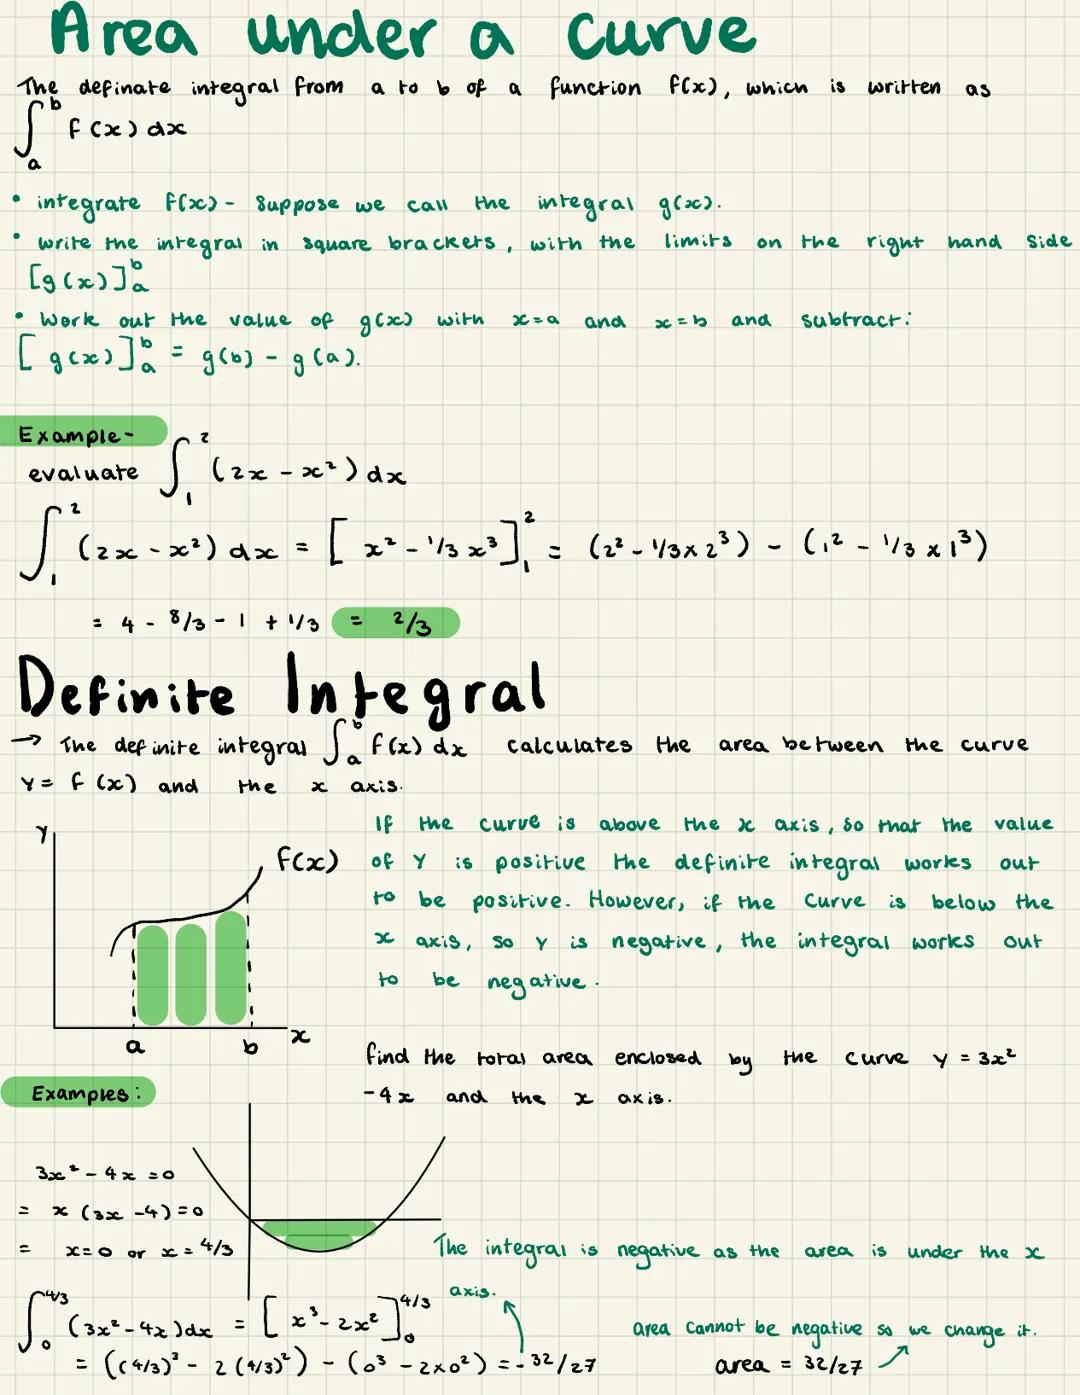 Area under a curve
The definate integral from a to b of a function f(x), which is written as
∫ₐᵇ f(x) dx
• integrate f(x) - Suppose we call the integral g(x).
• write the integral in square brackets, with the limits on the right hand side
[g(x)]ₐᵇ
• Work out the value of g(x) with x=a and x=b and subtract:
[g(x)]ₐᵇ = g(b) - g(a).
Example-
evaluate ∫₁² (2x - x²) dx
∫₁² (2x - x²) dx = [x² - 1/3 x³]₁² = (2² - 1/3 × 2³) - (1² - 1/3 × 1³)
= 4 - 8/3 - 1 + 1/3 = 2/3
Definite Integral
→ The definite integral ∫ₐᵇ f(x) dx calculates the area between the curve
y = f(x) and the x axis.
y
f(x)
a b x
If the curve is above the x axis, so that the value
of y is positive the definite integral works out
to be positive. However, if the curve is below the
x axis, so y is negative, the integral works out
to be negative.
Examples:
find the total area enclosed by the curve y = 3x²
-4x and the x axis.
3x² - 4x = 0
= x (3x - 4) = 0
= x = 0 or x = 4/3
The integral is negative as the area is under the x
axis.
∫₀⁴ᐟ³ (3x² - 4x) dx = [x³ - 2x²]₀⁴ᐟ³
= ((4/3)³ - 2(4/3)²) - (0³ - 2×0²) = -32/27
area cannot be negative so we change it.
area = 32/27